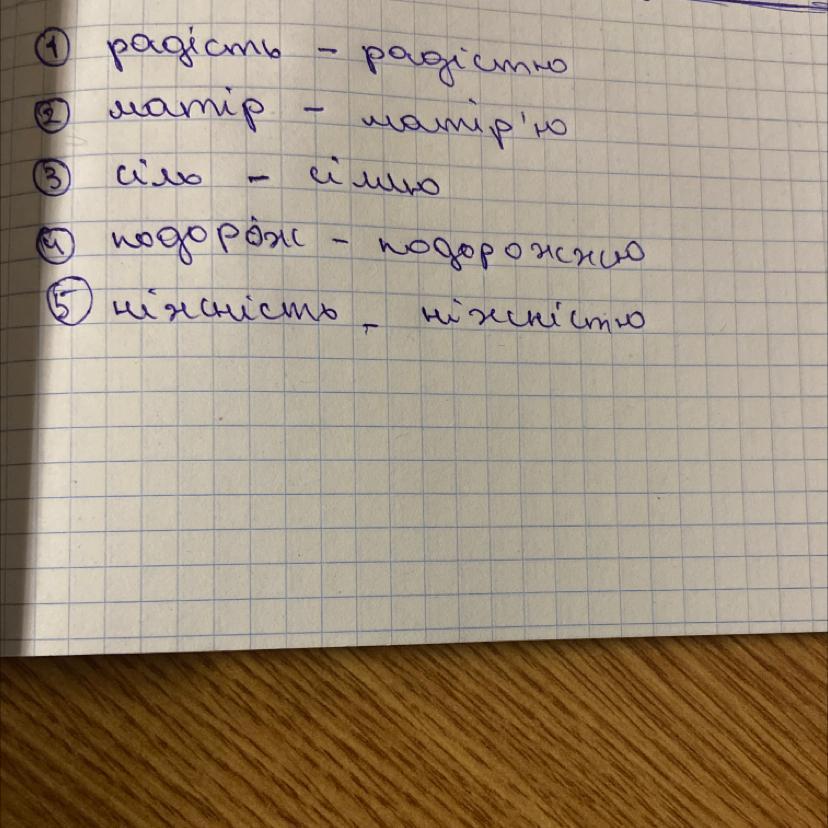 1 радість - радістю
2 матір - матір'ю
3 сіль - сіллю
4 подорож - подорожжю
5 ніжність - ніжністю